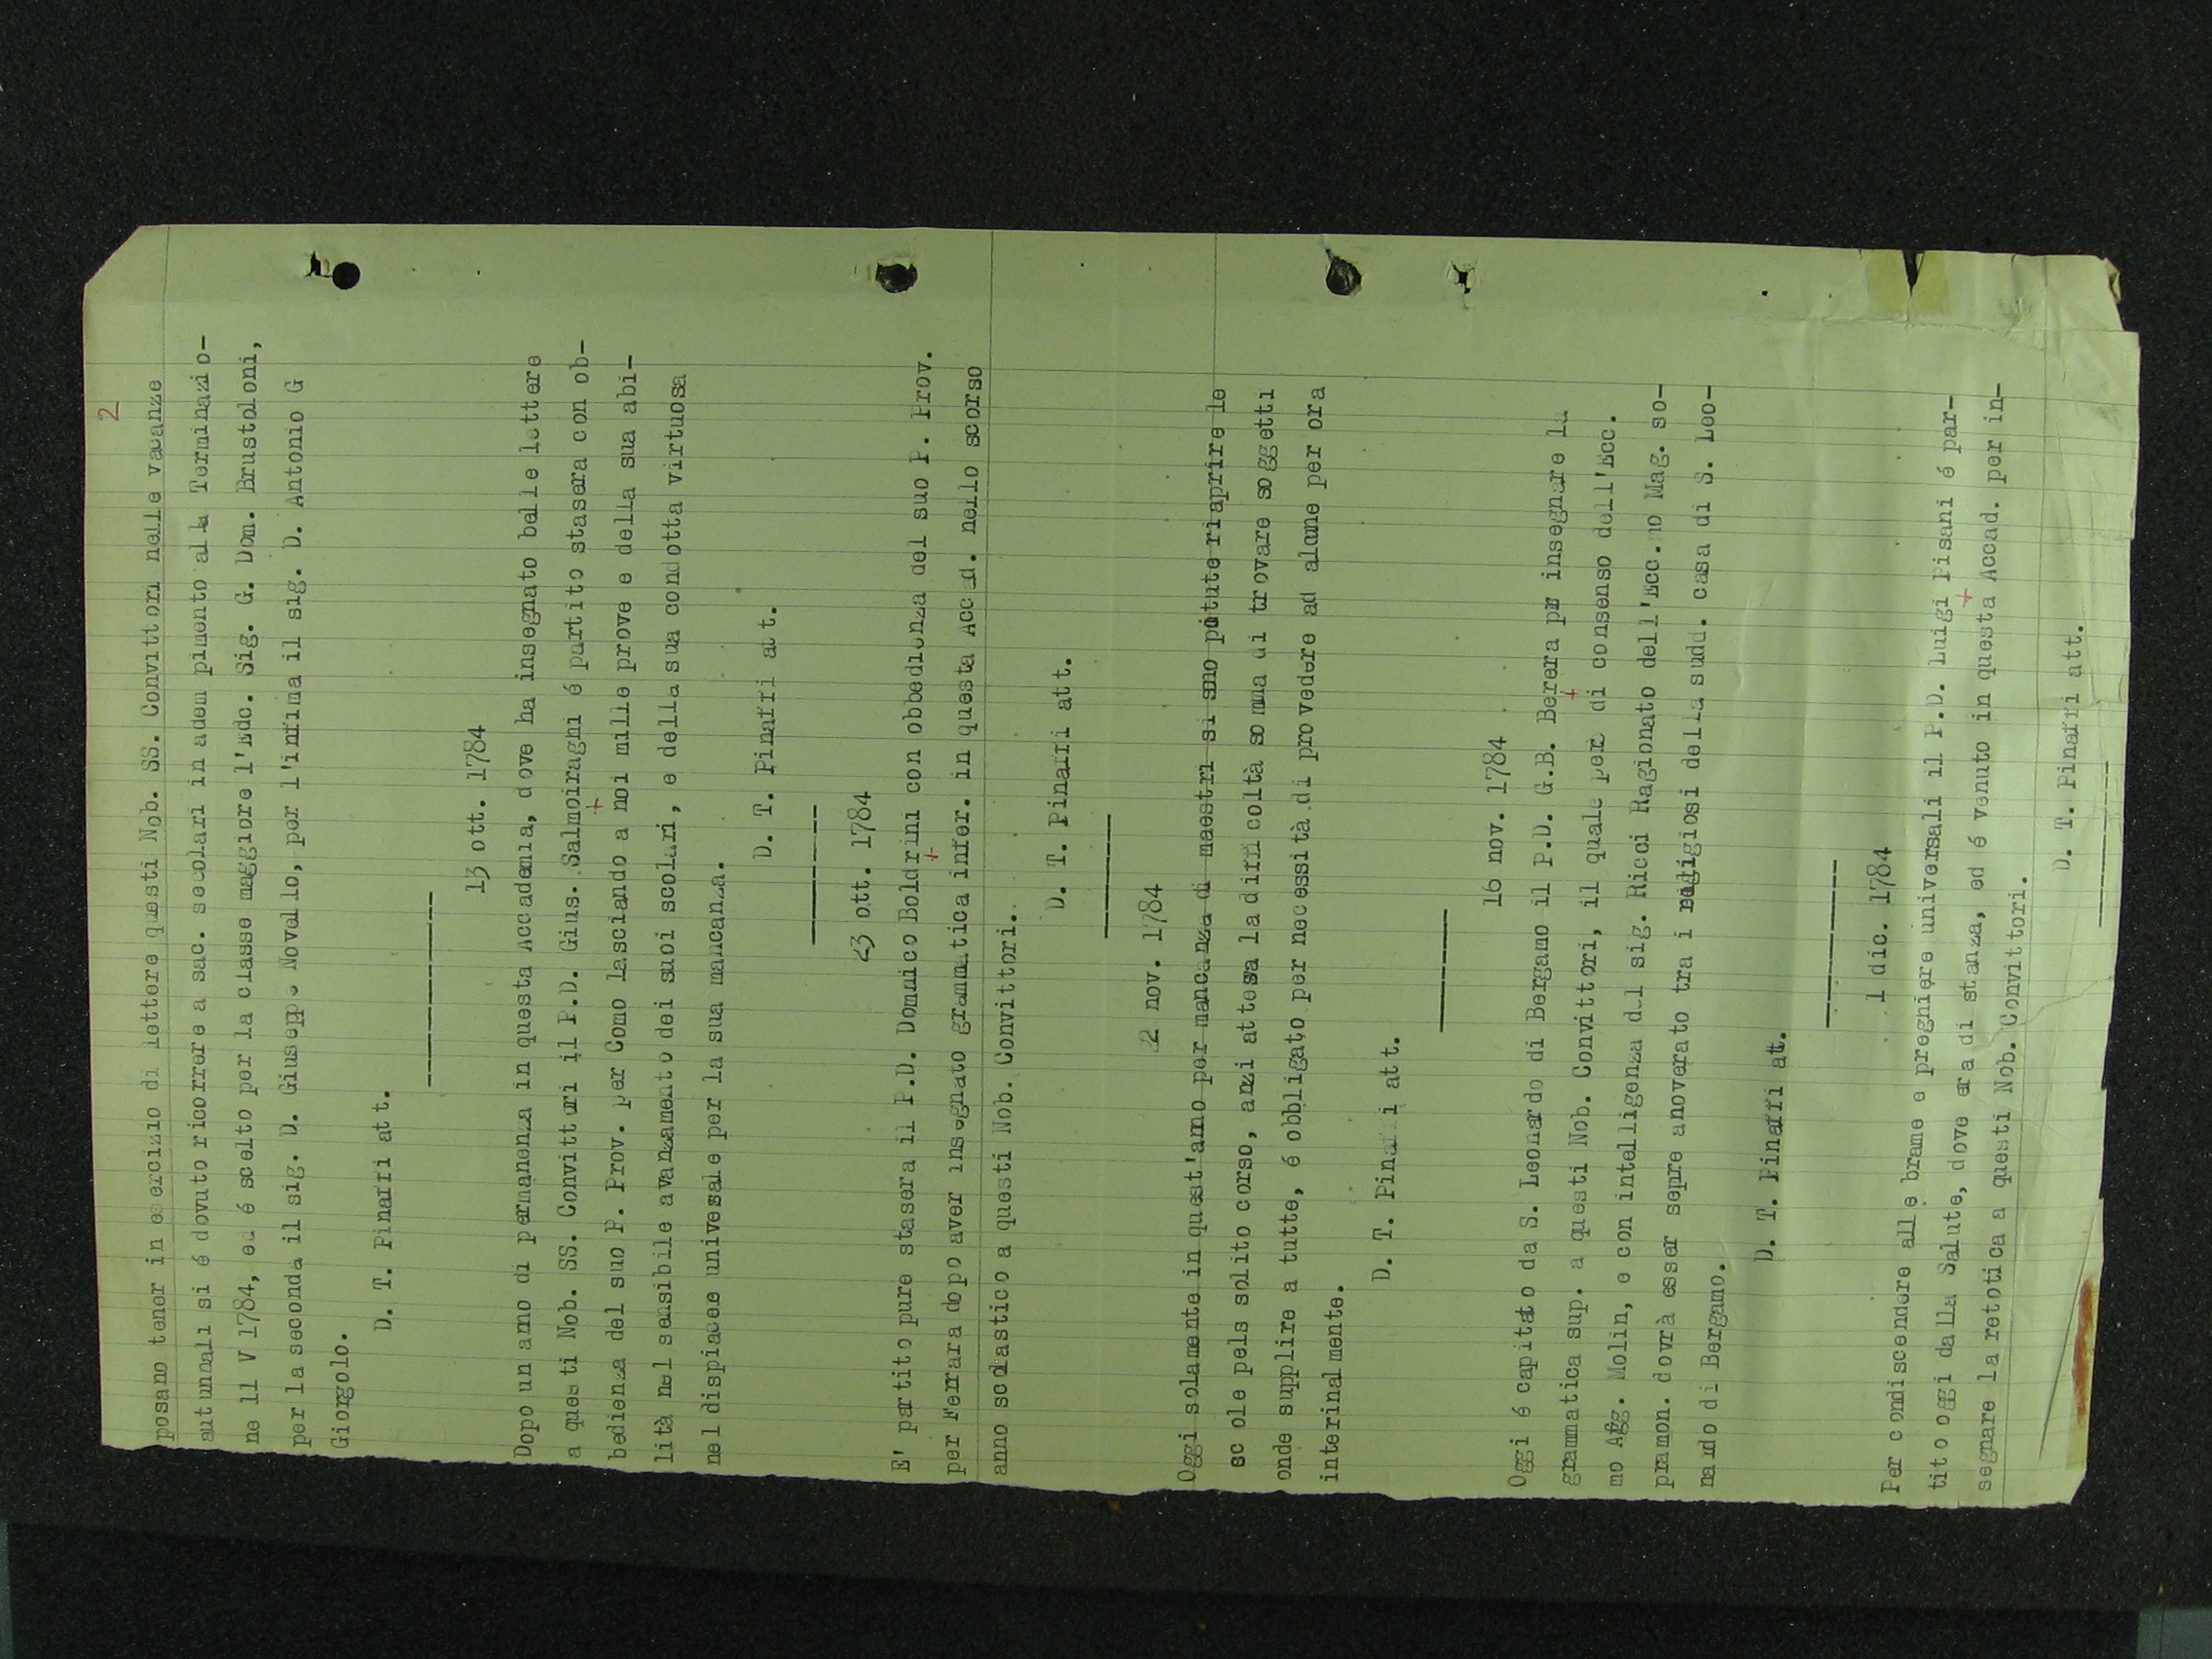 2
posano tener in esercizio di lettere questi Nob. SS. Convittori nelle vacanze
autunnali si é dovuto ricorrere a sac. secolari in adempimento alla Terminazio-
ne 11 V 1784, ed é scelto per la classe maggiore l'Edc. Sig. G. Dom. Brustoloni,
per la seconda il sig. D. Giuseppe Novallo, per l'infima il sig. D. Antonio G
Giorgolo.
D. T. Pinaffi att.
13 ott. 1784
Dopo un anno di permanenza in questa Accademia, dove ha insegnato belle lettere
a questi Nob. SS. Convittori il P.D. Gius. Salmoiraghi é partito stasera con ob-
bedienza del suo P. Prov. per Como lasciando a noi mille prove e della sua abi-
lità nel sensibile avanzamento dei suoi scolari, e della sua condotta virtuosa
nel dispiacee univesale per la sua mancanza.
D. T. Pinaffi att.
23 ott. 1784
E' partito pure stasera il P.D. Domnico Boldrini con obbedienza del suo P. Prov.
per Ferrara dopo aver insegnato grammatica infer. in questa Accad. nello scorso
anno scolastico a questi Nob. Convittori.
D. T. Pinaffi att.
22 nov. 1784
Oggi solamente in quest'anno per mancanza di maestri si sono potute riaprire le
scole pels solito corso, anzi attesa la difficoltà somma di trovare soggetti
onde supplire a tutte, é obbligato per necessità di provedere ad alcune per ora
interinalmente.
D. T. Pinaffi att.
16 nov. 1784
Oggi é capitato da S. Leonardo di Bergamo il P.D. G.B. Berera pr insegnare la
grammatica sup. a questi Nob. Convittori, il quale per di consenso dell'Ecc.
mo Agg. Molin, e con intelligenza del sig. Ricci Ragionato dell'Ecc.mo Mag. so-
pramon. dovrà esser sepre anoverato tra i religiosi della sudd. casa di S. Leo-
nardo di Bergamo.
D. T. Pinaffi att.
1 dic. 1784
Per condiscendere alle brame e preghiere universali il P.D. Luigi Pisani é par-
tito oggi dalla Salute, dove era di stanza, ed é venuto in questa Accad. per in-
segnare la retotica a questi Nob. Convittori.
D. T. Pinaffi att.